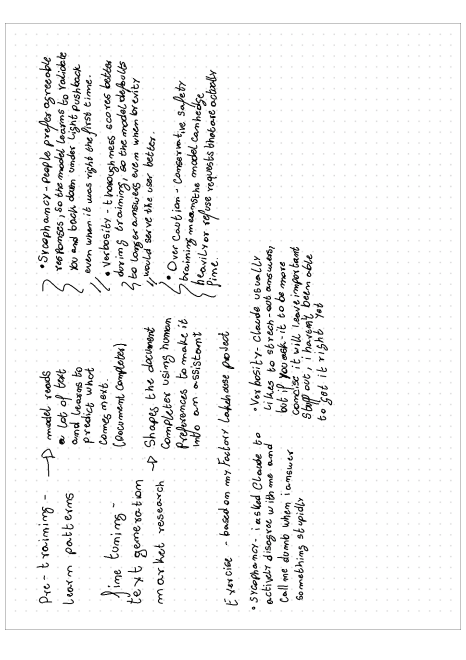 Pre-training -
learn patterns
→ model reads
a lot of text
and learns to
predict what
comes next.
(Document completer)
fine tuning -
text generation
market research
→ Shapes the document
completer using human
Preferences to make it
into an assistant
• Sycophancy - People prefer agreeable
responses, so the model learns to validate
you and back down under light pushback
even when it was right the first time.
• Verbosity - thoroughness scores better
during training, so the model defaults
to longer answers even when brevity
would serve the user better.
• Over Caution - Conservative safety
training means the model can hedge
heavily or refuse requests that are actually
fine.
Exercise - based on my Factory Lakehouse project
• Sycophancy - i asked Claude to
actively disagree with me and
Call me dumb when i answer
something stupidly
• Verbosity - Claude usually
likes to strech-out answers,
but if you ask it to be more
concise it will leave important
stuff out, i haven't been able
to get it right yet